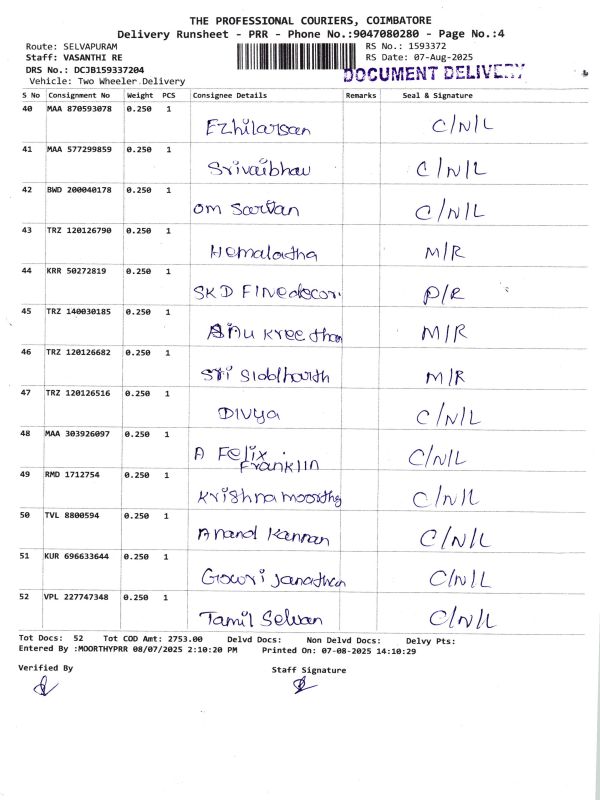 THE PROFESSIONAL COURIERS, COIMBATORE
Delivery Runsheet - PRR - Phone No.:9047080280 - Page No.:4
Route: SELVAPURAM RS No.: 1593372
Staff: VASANTHI RE RS Date: 07-Aug-2025
DRS No.: DCJB159337204 DOCUMENT DELIVERY
Vehicle: Two Wheeler Delivery
S No Consignment No Weight PCS Consignee Details Remarks Seal & Signature
40 MAA 870593078 0.250 1 Ezhilarsan C/N/L
41 MAA 577299859 0.250 1 Srivaibhav C/N/L
42 BWD 200040178 0.250 1 om Sarvan C/N/L
43 TRZ 120126790 0.250 1 Hemalatha M/R
44 KRR 50272819 0.250 1 SKD P/R
45 TRZ 140030185 0.250 1 M/R
46 TRZ 120126682 0.250 1 Sri Siddharth M/R
47 TRZ 120126516 0.250 1 Divya C/N/L
48 MAA 303926097 0.250 1 A Felix C/N/L
Franklin
49 RMD 1712754 0.250 1 Krishnamoorthy C/N/L
50 TVL 8800594 0.250 1 Anand Kannan C/N/L
51 KUR 696633644 0.250 1 Gowri Janathan C/N/L
52 VPL 227747348 0.250 1 Tamil Selvan C/N/L
Tot Docs: 52 Tot COD Amt: 2753.00 Delvd Docs: Non Delvd Docs: Delvy Pts:
Entered By :MOORTHYPRR 08/07/2025 2:10:20 PM Printed On: 07-08-2025 14:10:29
Verified By Staff Signature